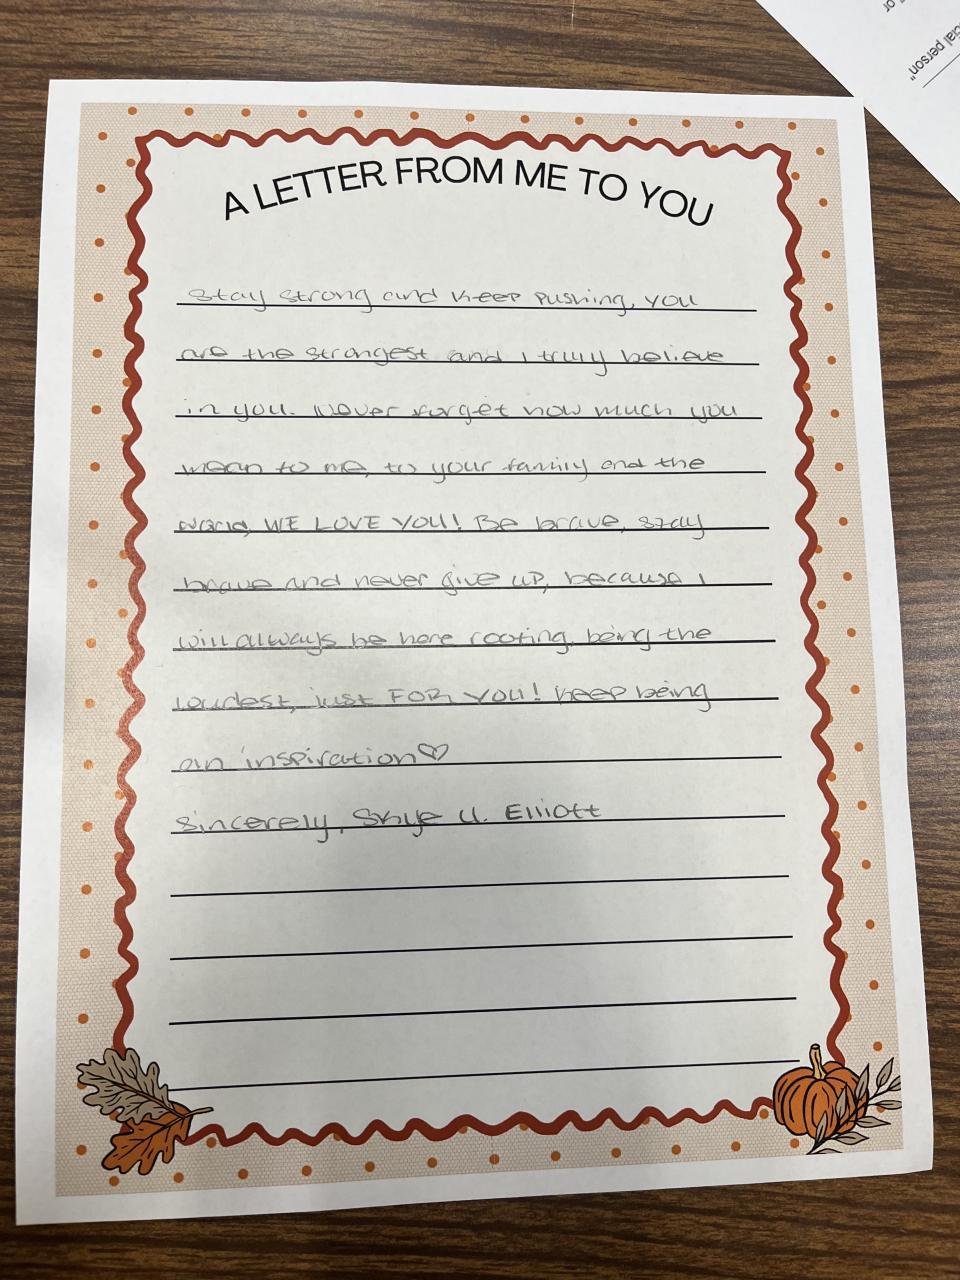 or
cial person"
A LETTER FROM ME TO YOU
Stay strong and keep pushing, you
are the strongest and I truly believe
in you. Never forget how much you
mean to me, to your family and the
world, WE LOVE YOU! Be brave, stay
brave and never give up, because I
will always be here rooting, being the
loudest, just FOR YOU! Keep being
an inspiration♡
Sincerely, Skye U. Elliott